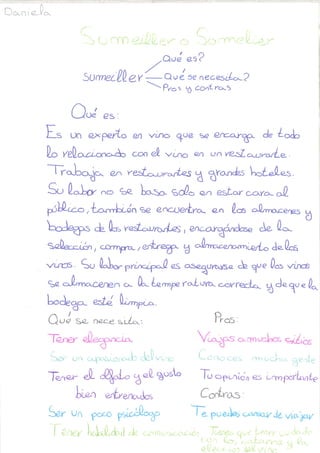 Daniela
Sumeller o Somelier
Qué es?
Sumeller Qué se necesita?
Pros y contras
Qué es:
Es un experto en vino que se encarga de todo
lo relacionado con el vino en un restaurante.
Trabaja en restaurantes y grandes hoteles.
Su labor no se basa solo en estar cara al
público, también se encuentra en los almacenes y
bodegas de los restaurantes, encargándose de la
selección, compra, entrega y almacenamiento de los
vinos. Su labor principal es asegurarse de que los vinos
se almacenen a la temperatura correcta y de que la
bodega esté limpia.
Qué se necesita: Pros:
Tener elegancia Viajas a muchos sitios
Ser un apasionado del vino Conoces mucha gente
Tener el olfato y el gusto Tu opinión es importante
bien entrenados Contras:
Ser un poco psicólogo Te puedes cansar de viajar
Tener habilidad de comunicación Tienes que tener cuidado
con los